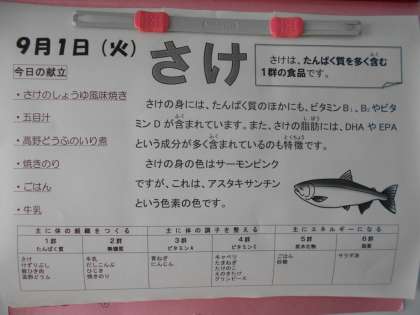 9月1日（火）
さけ
さけは、たんぱく質を多く含む
1群の食品です。
今日の献立
・さけのしょうゆ風味焼き
・五目汁
・高野どうふのいり煮
・焼きのり
・ごはん
・牛乳
さけの身には、たんぱく質のほかにも、ビタミンB₁、B₂やビタ
ミンDが含まれています。また、さけの脂肪には、DHAやEPA
という成分が多く含まれているのも特徴です。
さけの身の色はサーモンピンク
ですが、これは、アスタキサンチン
という色素の色です。
主に体の組織をつくる 主に体の調子を整える 主にエネルギーになる
1群 2群 3群 4群 5群 6群
たんぱく質 無機質 ビタミンA ビタミンC 炭水化物 脂質
さけ 牛乳 青ねぎ キャベツ ごはん サラダ油
けずりぶし だしこんぶ にんじん たまねぎ 砂糖
豚ひき肉 ひじき たけのこ
高野どうふ 焼きのり えのきたけ
グリンピース